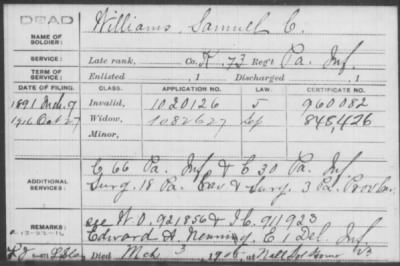 DEAD
NAME OF SOLDIER: Williams, Samuel C.
SERVICE: Late rank, Co. K. 73 Reg't Pa. Inf.
TERM OF SERVICE: Enlisted , 1 Discharged , 1
DATE OF FILING. CLASS. APPLICATION NO. LAW. CERTIFICATE NO.
1891 Mch. 9 Invalid, 1020126 5 960082
1916 Oct 27 Widow, 1082627 848,426
Minor,
C 66 Pa. Inf & E 30 Pa. Inf
ADDITIONAL SERVICES: Surg. 18 Pa. & Surg. 3 Pa.
REMARKS: see W O. 921856 & I C. 911923
Edward A. E 1 Del. Inf
Died Mch 3, at Natl